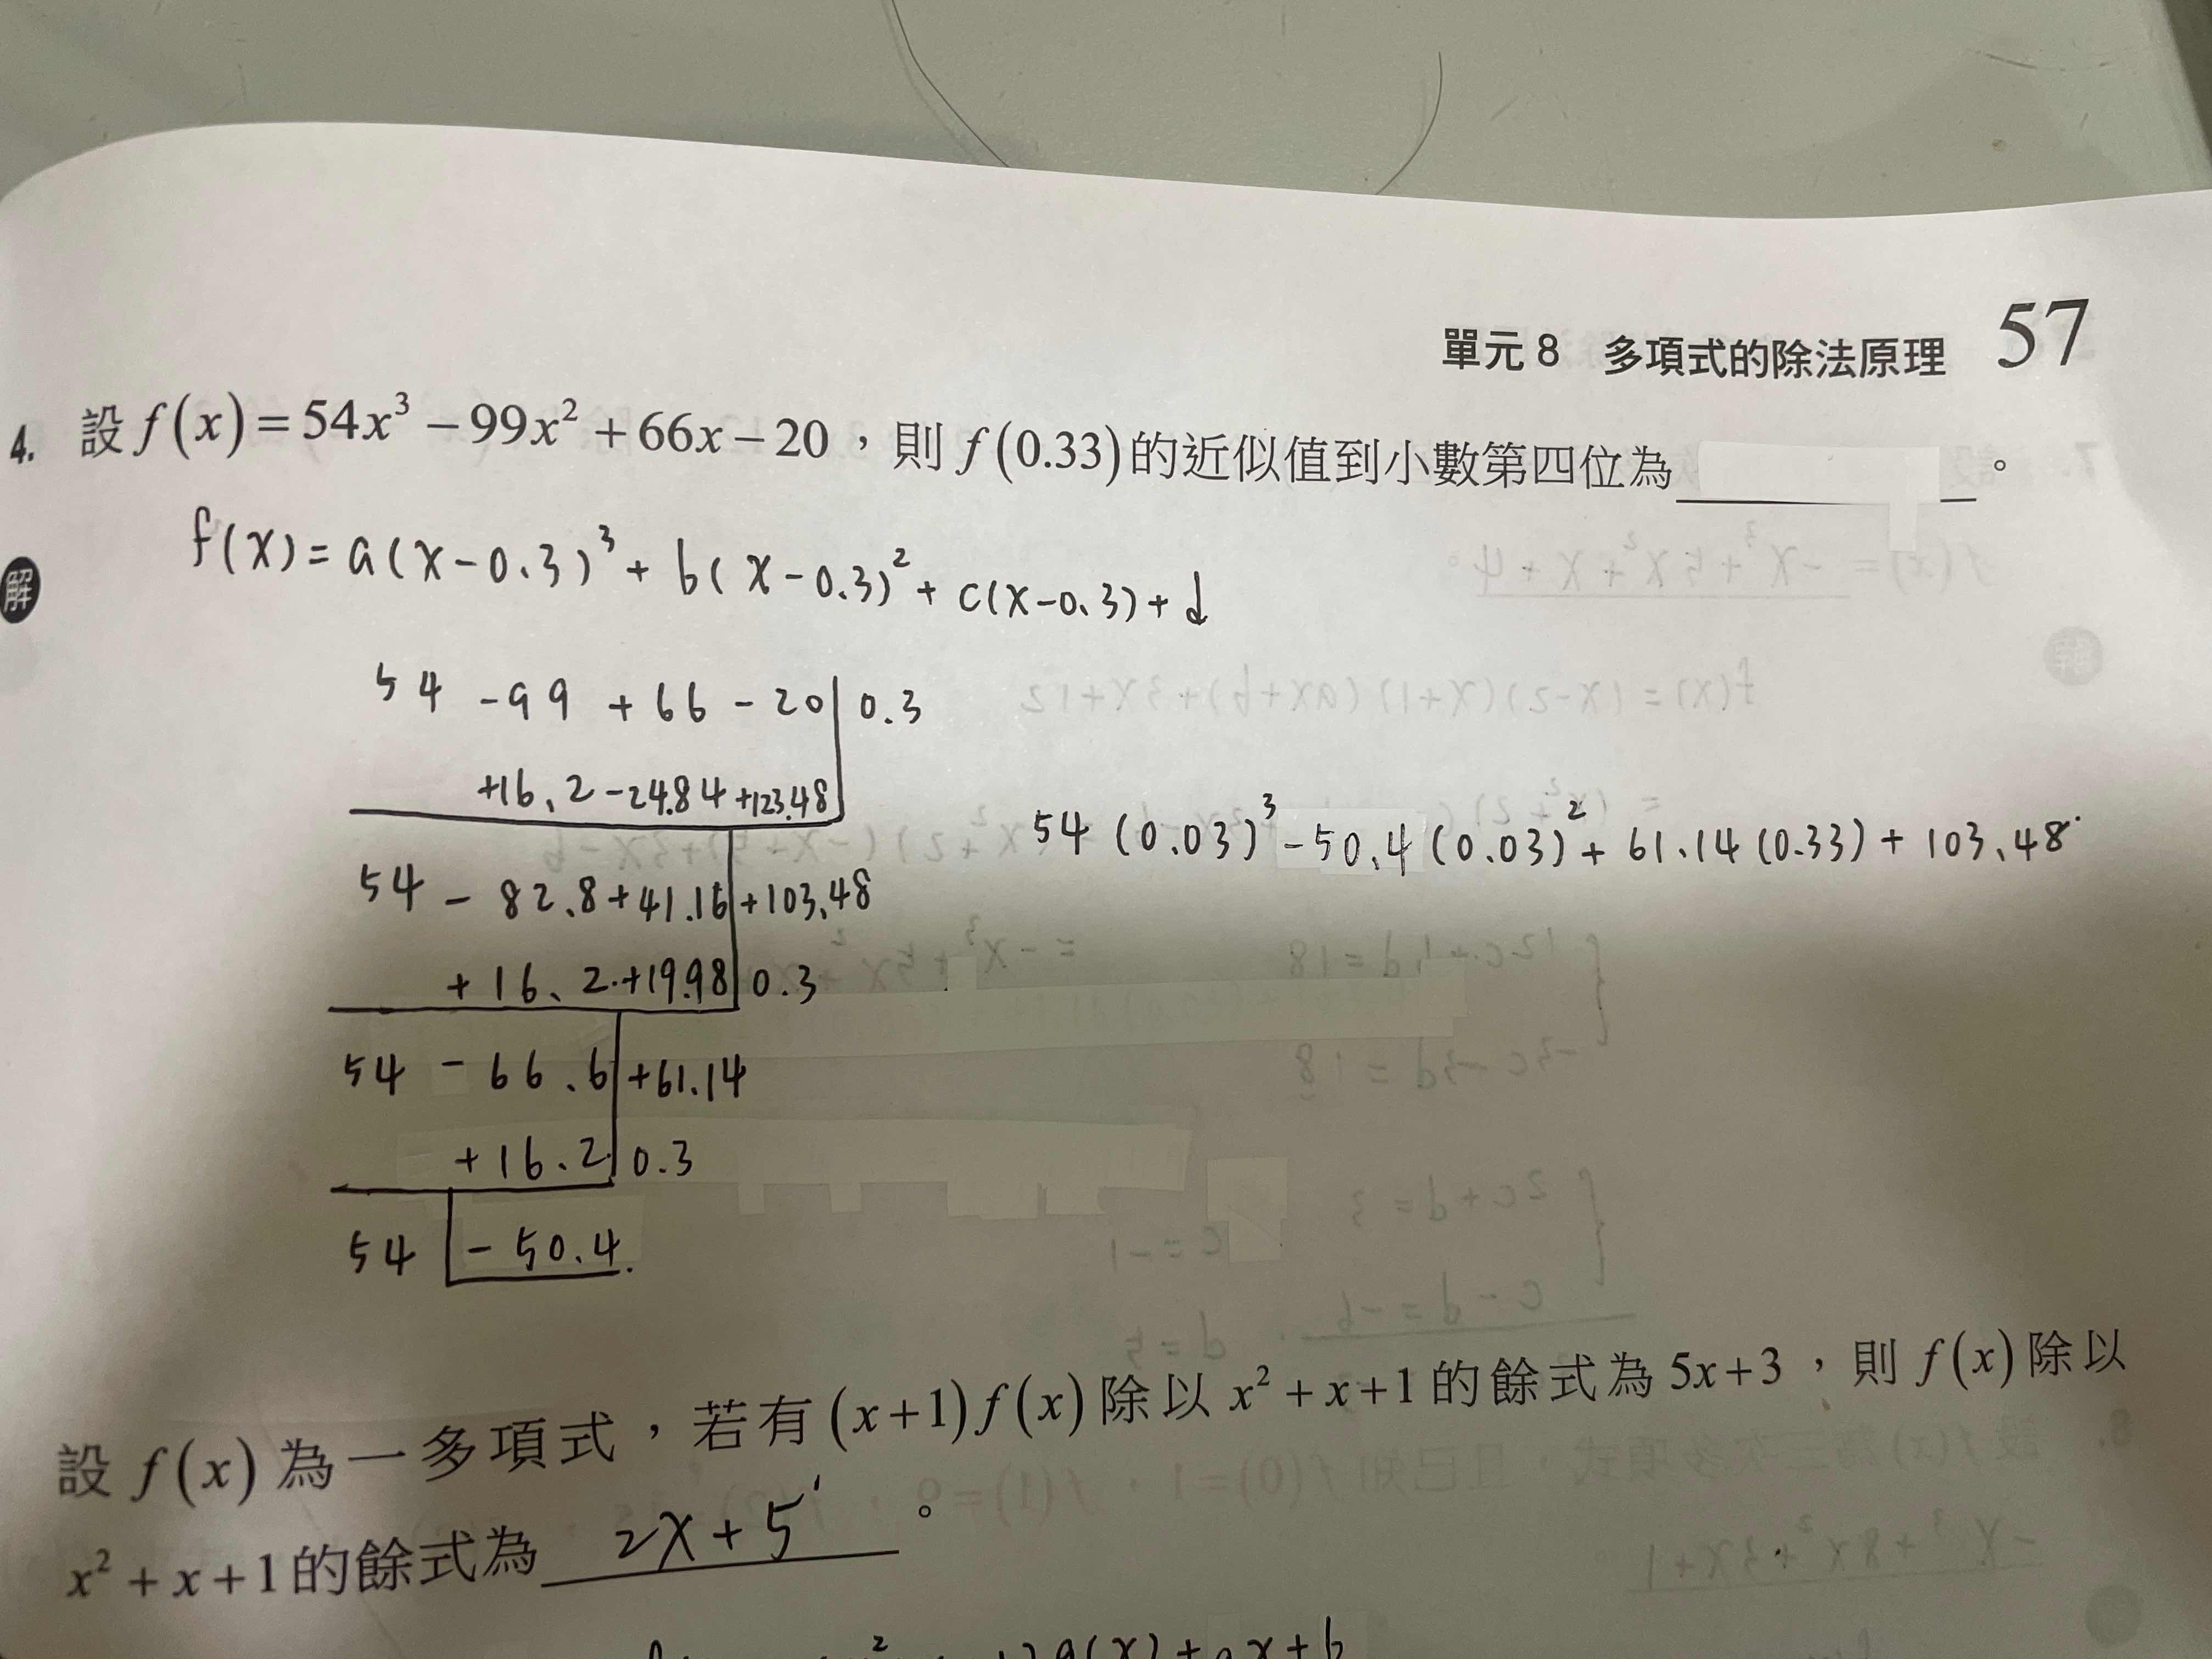 單元 8 多項式的除法原理 57
4. 設 f(x)=54x³−99x²+66x−20，則 f(0.33)的近似值到小數第四位為＿＿＿＿。
解
f(x)=a(x-0.3)³+b(x-0.3)²+c(x-0.3)+d
54 -99 +66 -20 0.3
+16.2 -24.84 +123.48
54 -82.8 +41.16 +103.48
+16.2 +19.98 0.3
54 -66.6 +61.14
+16.2 0.3
54 -50.4
54(0.03)³-50.4(0.03)²+61.14(0.33)+103.48
設 f(x) 為一多項式，若有(x+1)f(x)除以 x²+x+1的餘式為5x+3，則 f(x)除以
x²+x+1的餘式為 2x+5。